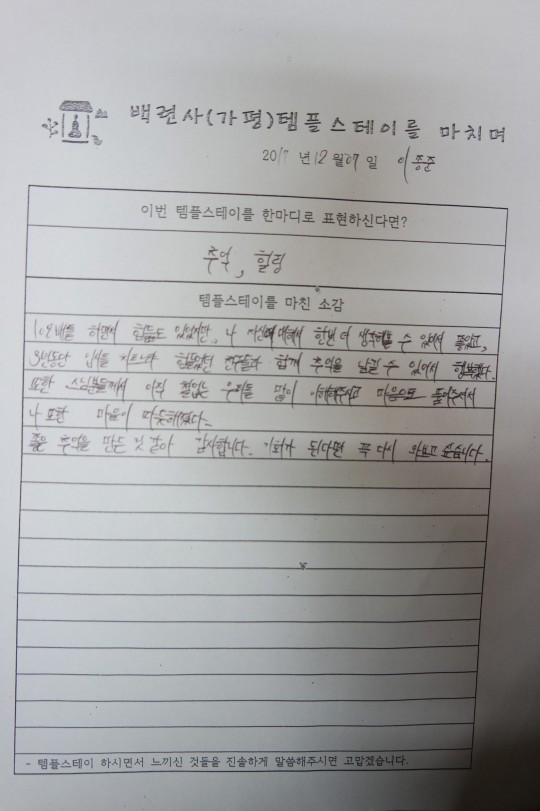 백련사(가평)템플스테이를 마치며
2017 년 12 월 09 일 이종준
이번 템플스테이를 한마디로 표현하신다면?
추억, 힐링
템플스테이를 마친 소감
108배를 하면서 힘듦도 있었지만, 나 자신에 대해서 한번 더 생각해볼 수 있어서 좋았고,
3년동안 입시를 치르느라 힘들었던 친구들과 함께 추억을 남길 수 있어서 행복했다.
또한 스님분들께서 아직 철없는 우리를 많이 이해해주시고 마음으로 품어주셔서
나 또한 마음이 따듯해졌다.
좋은 추억을 만든 것 같아 감사합니다. 기회가 된다면 꼭 다시 와보고 싶습니다.
- 템플스테이 하시면서 느끼신 것들을 진솔하게 말씀해주시면 고맙겠습니다.